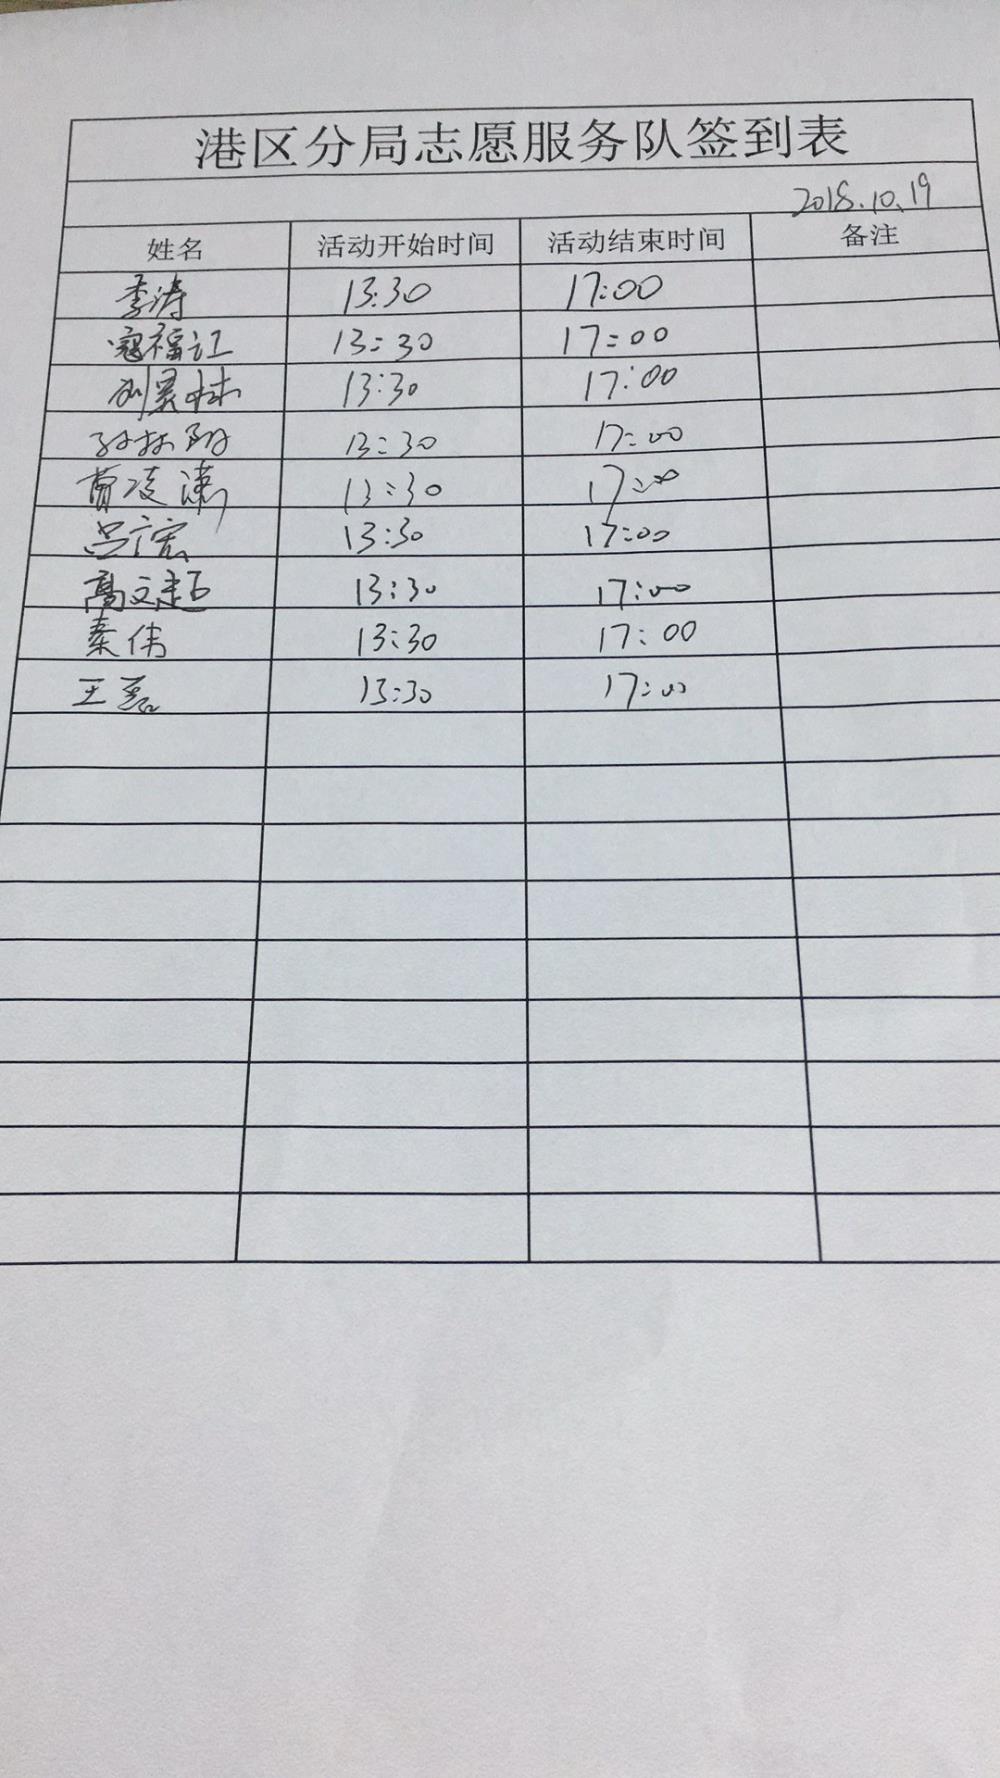 港区分局志愿服务队签到表
2018.10.19
姓名 活动开始时间 活动结束时间 备注
李涛 13:30 17:00
寇福江 13:30 17:00
刘 13:30 17:00
孙林阳 13:30 17:00
曹凌潇 13:30 17:00
吕广宏 13:30 17:00
高文超 13:30 17:00
秦伟 13:30 17:00
王磊 13:30 17:00